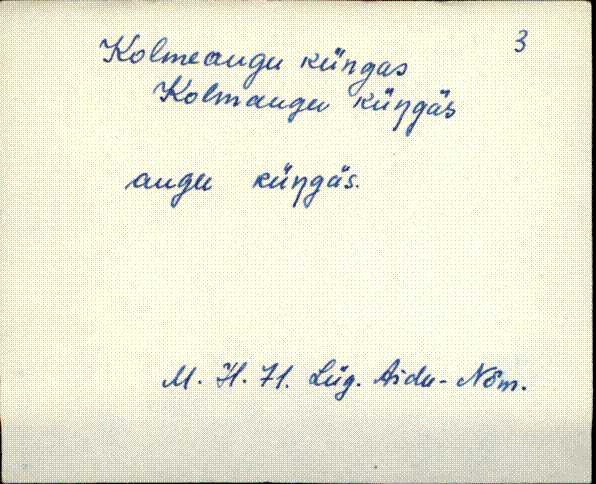 3
Kolmeaugu küngas
Kolmaugu küŋgäs
augu küŋgäs.
M. H. 71. Lüg. Aidu-Nõm.